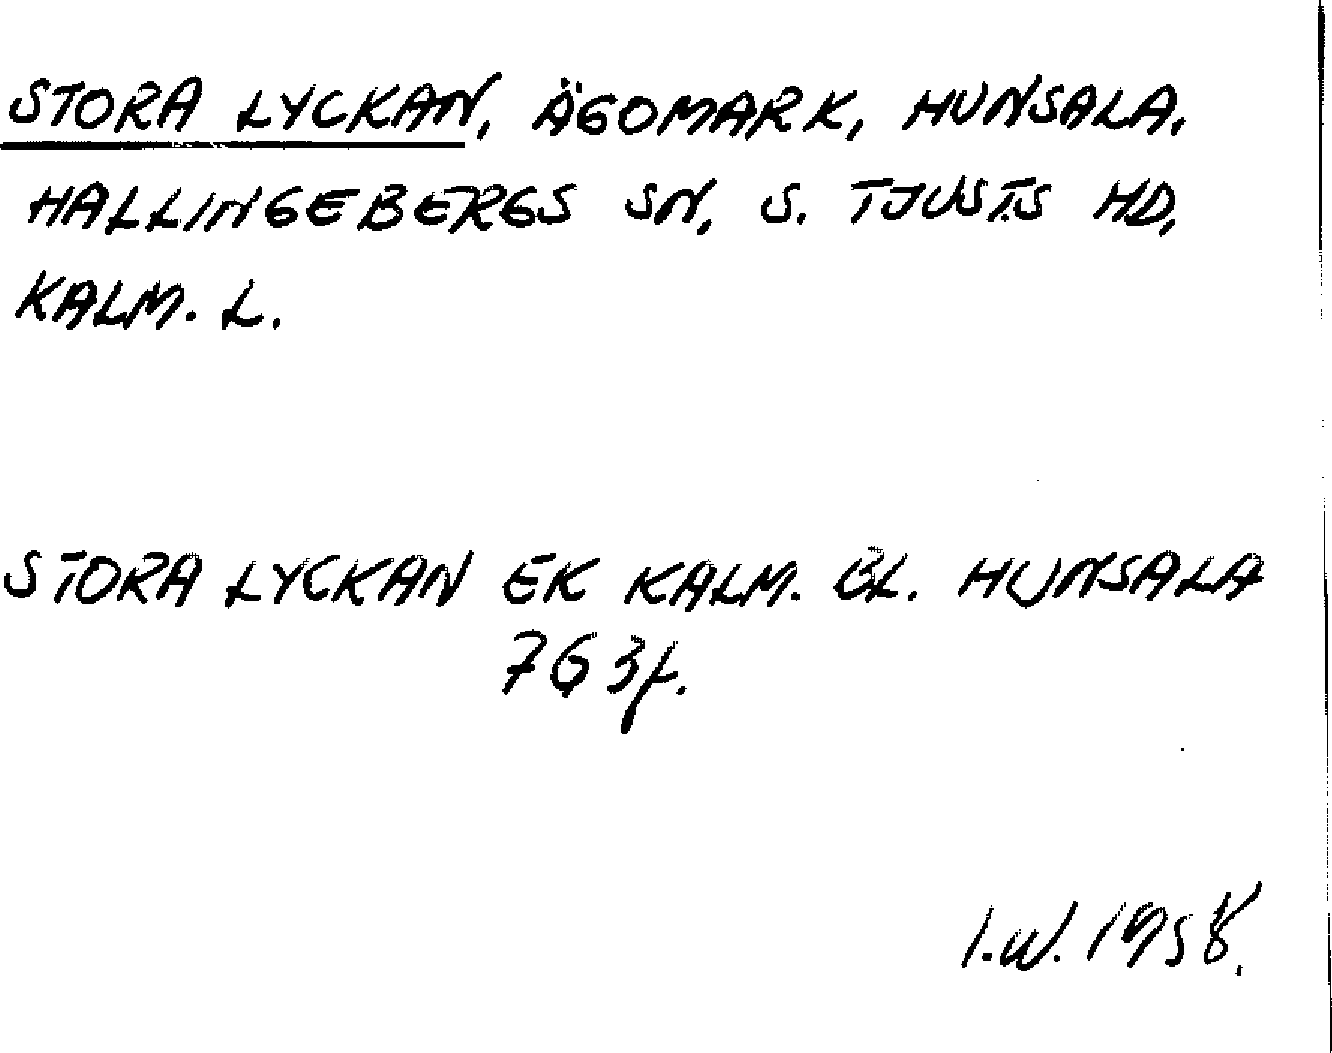 STORA LYCKAN, ÄGOMARK, HUNSALA,
HALLINGEBERGS SN, S. TJUSTS HD,
KALM. L.
STORA LYCKAN EK KALM. BL. HUNSALA
7G 3f.
I.W. 1958.